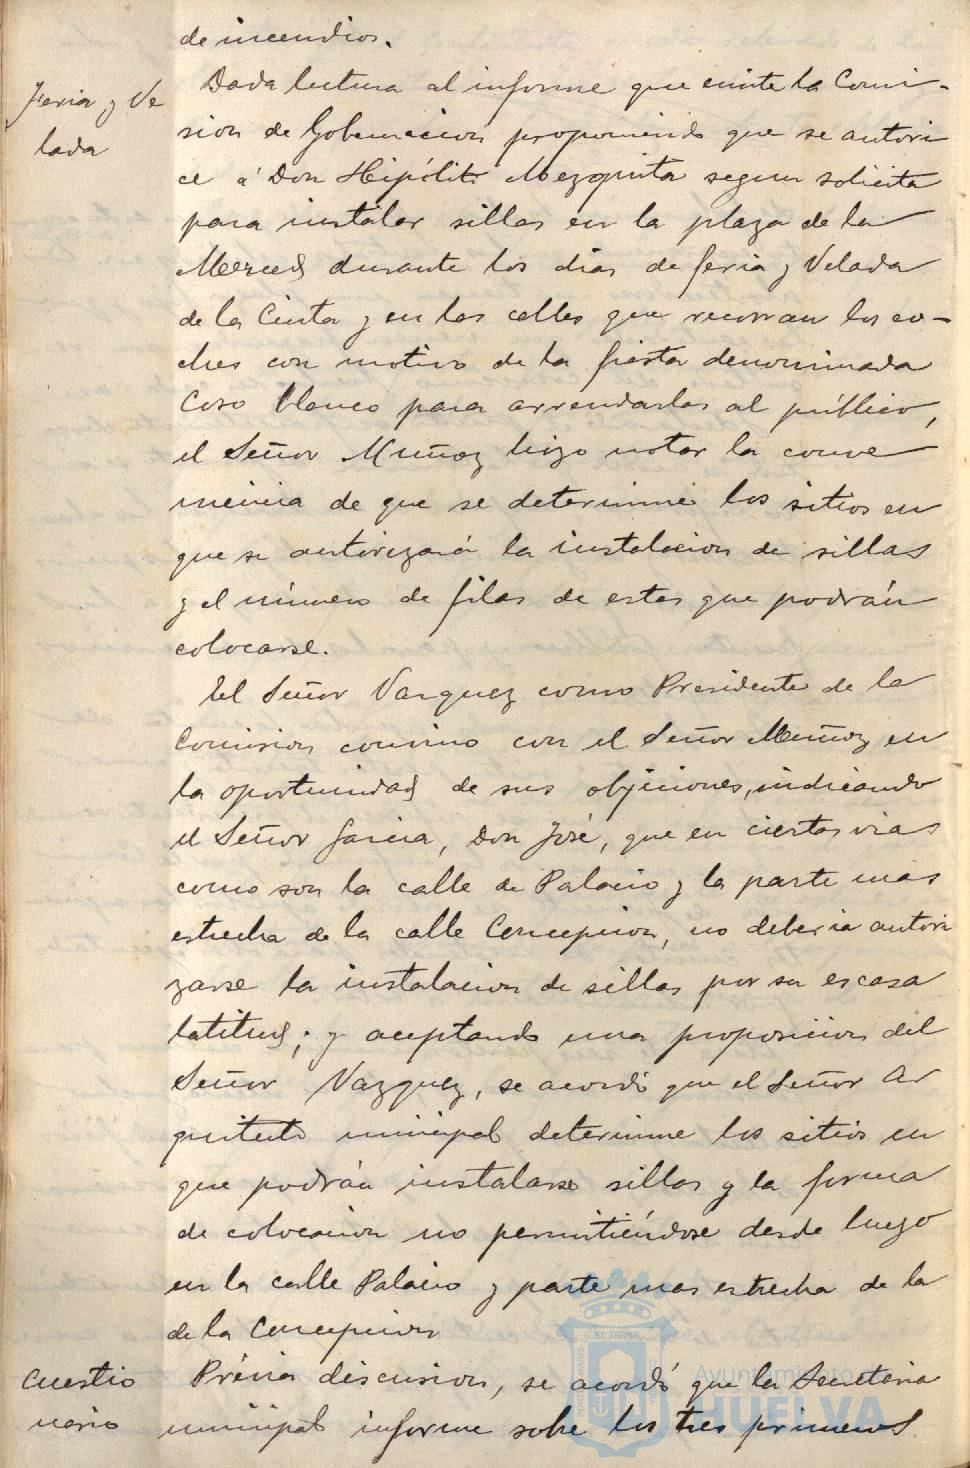 de incendios.
Feria y Ve
lada
Dada lectura al informe que emite la Comi-
sion de Gobernacion proponiendo que se autori
ce á Don Hipólito Mezquita segun solicita
para instalar sillas en la plaza de la
Merced durante los dias de feria y Velada
de la Cinta y en las calles que recorran los co-
ches con motivo de la fiesta denominada
Coso blanco para arrendarlas al público,
el Señor Muñoz hizo notar la conve
niencia de que se determine los sitios en
que se autorizará la instalacion de sillas
y el número de filas de estas que podrán
colocarse.
El Señor Vazquez como Presidente de la
Comision convino con el Señor Muñoz en
la oportunidad de sus objeciones, indicando
el Señor Garcia, Don José, que en ciertas vias
como son la calle de Palacio y la parte mas
estrecha de la calle Concepcion, no deberia autori
zarse la instalacion de sillas por su escasa
latitud; y aceptando una proposicion del
Señor Vazquez, se acordó que el Señor Ar
quitecto municipal determine los sitios en
que podrán instalarse sillas y la forma
de colocacion no permitiéndose desde luego
en la calle Palacio y parte mas estrecha de la
de la Concepcion
Cuestio
nario
Prévia discusion, se acordó que la Secretaria
municipal informe sobre los tres primeros
ET TERRA
Ayuntamiento de
HUELVA